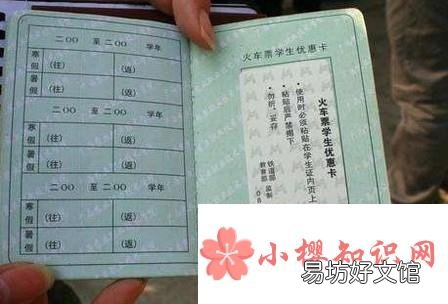 二00 至二00 学年
寒假 (往) (返)
暑假 (往) (返)
二00 至二00 学年
寒假 (往) (返)
暑假 (往) (返)
二00 至二00 学年
寒假 (往) (返)
暑假 (往) (返)
火车票学生优惠卡
火车票学生优惠卡
·使用时必须粘贴在学生证内页上
·粘贴后严禁揭下
·勿折、妥存
铁道部
教育部 监制
08
小樱知识网
易坊好文馆